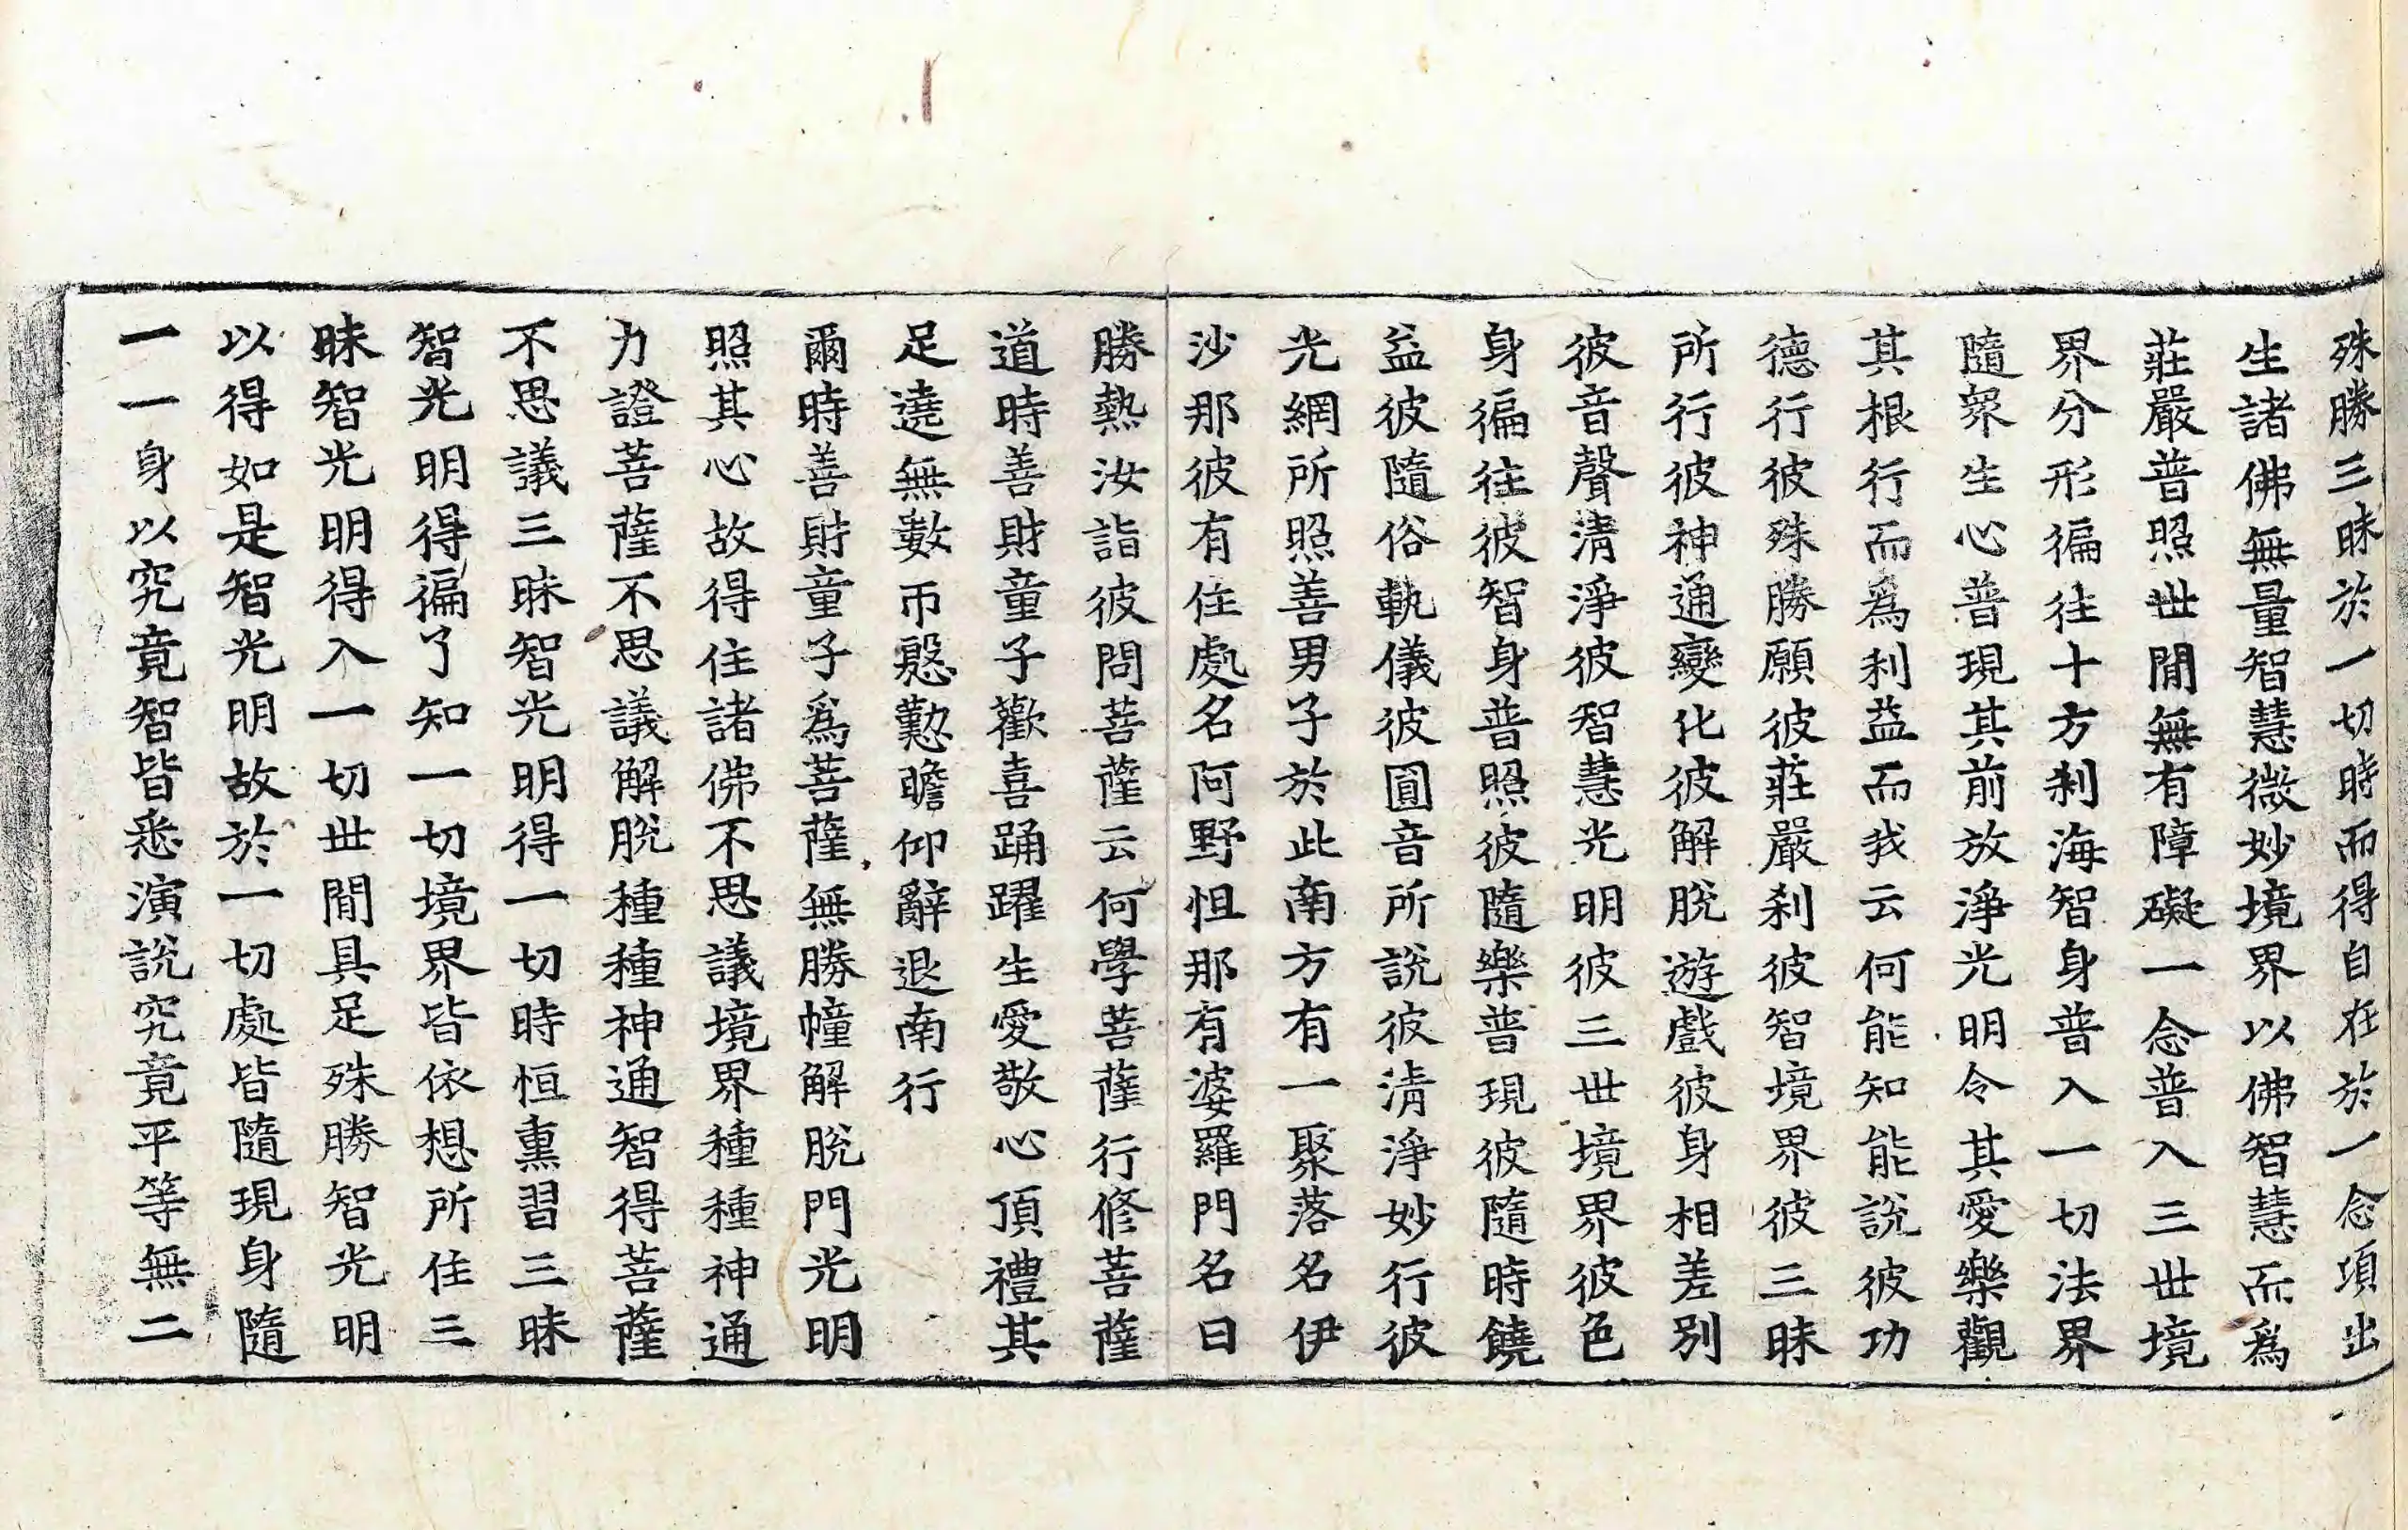 殊勝三昧於一切時而得自在於一念項出
生諸佛無量智慧微妙境界以佛智慧而爲
莊嚴普照世間無有障礙一念普入三世境
界分形徧往十方刹海智身普入一切法界
隨衆生心普現其前放淨光明令其愛樂觀
其根行而爲利益而我云何能知能說彼功
德行彼殊勝願彼莊嚴刹彼智境界彼三昧
所行彼神通變化彼解脫遊戲彼身相差別
彼音聲清淨彼智慧光明彼三世境界彼色
身徧往彼智身普照彼隨樂普現彼隨時饒
益彼隨俗執儀彼圓音所說彼清淨妙行彼
光網所照善男子於此南方有一聚落名伊
沙那彼有住處名阿野怛那有婆羅門名曰
勝熱汝詣彼問菩薩云何學菩薩行修菩薩
道時善財童子歡喜踊躍生愛敬心頂禮其
足遶無數帀慇懃瞻仰辭退南行
爾時善財童子爲菩薩無勝幢解脫門光明
照其心故得住諸佛不思議境界種種神通
力證菩薩不思議解脫種種神通智得菩薩
不思議三昧智光明得一切時恒熏習三昧
智光明得徧了知一切境界皆依想所住三
昧智光明得入一切世間具足殊勝智光明
以得如是智光明故於一切處皆隨現身隨
一一身以究竟智皆悉演說究竟平等無二